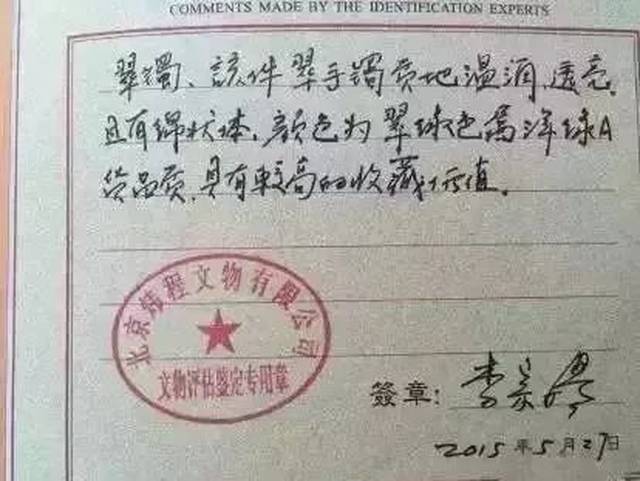 COMMENTS MADE BY THE IDENTIFICATION EXPERTS
翠镯、該件翠手镯质地温润,透亮,
且有绵状体,颜色为翠绿色属洋绿A
货品质,具有較高的收藏价值。
北京炜程文物有限公司
文物评估鉴定专用章
簽章:
2015年5月27日